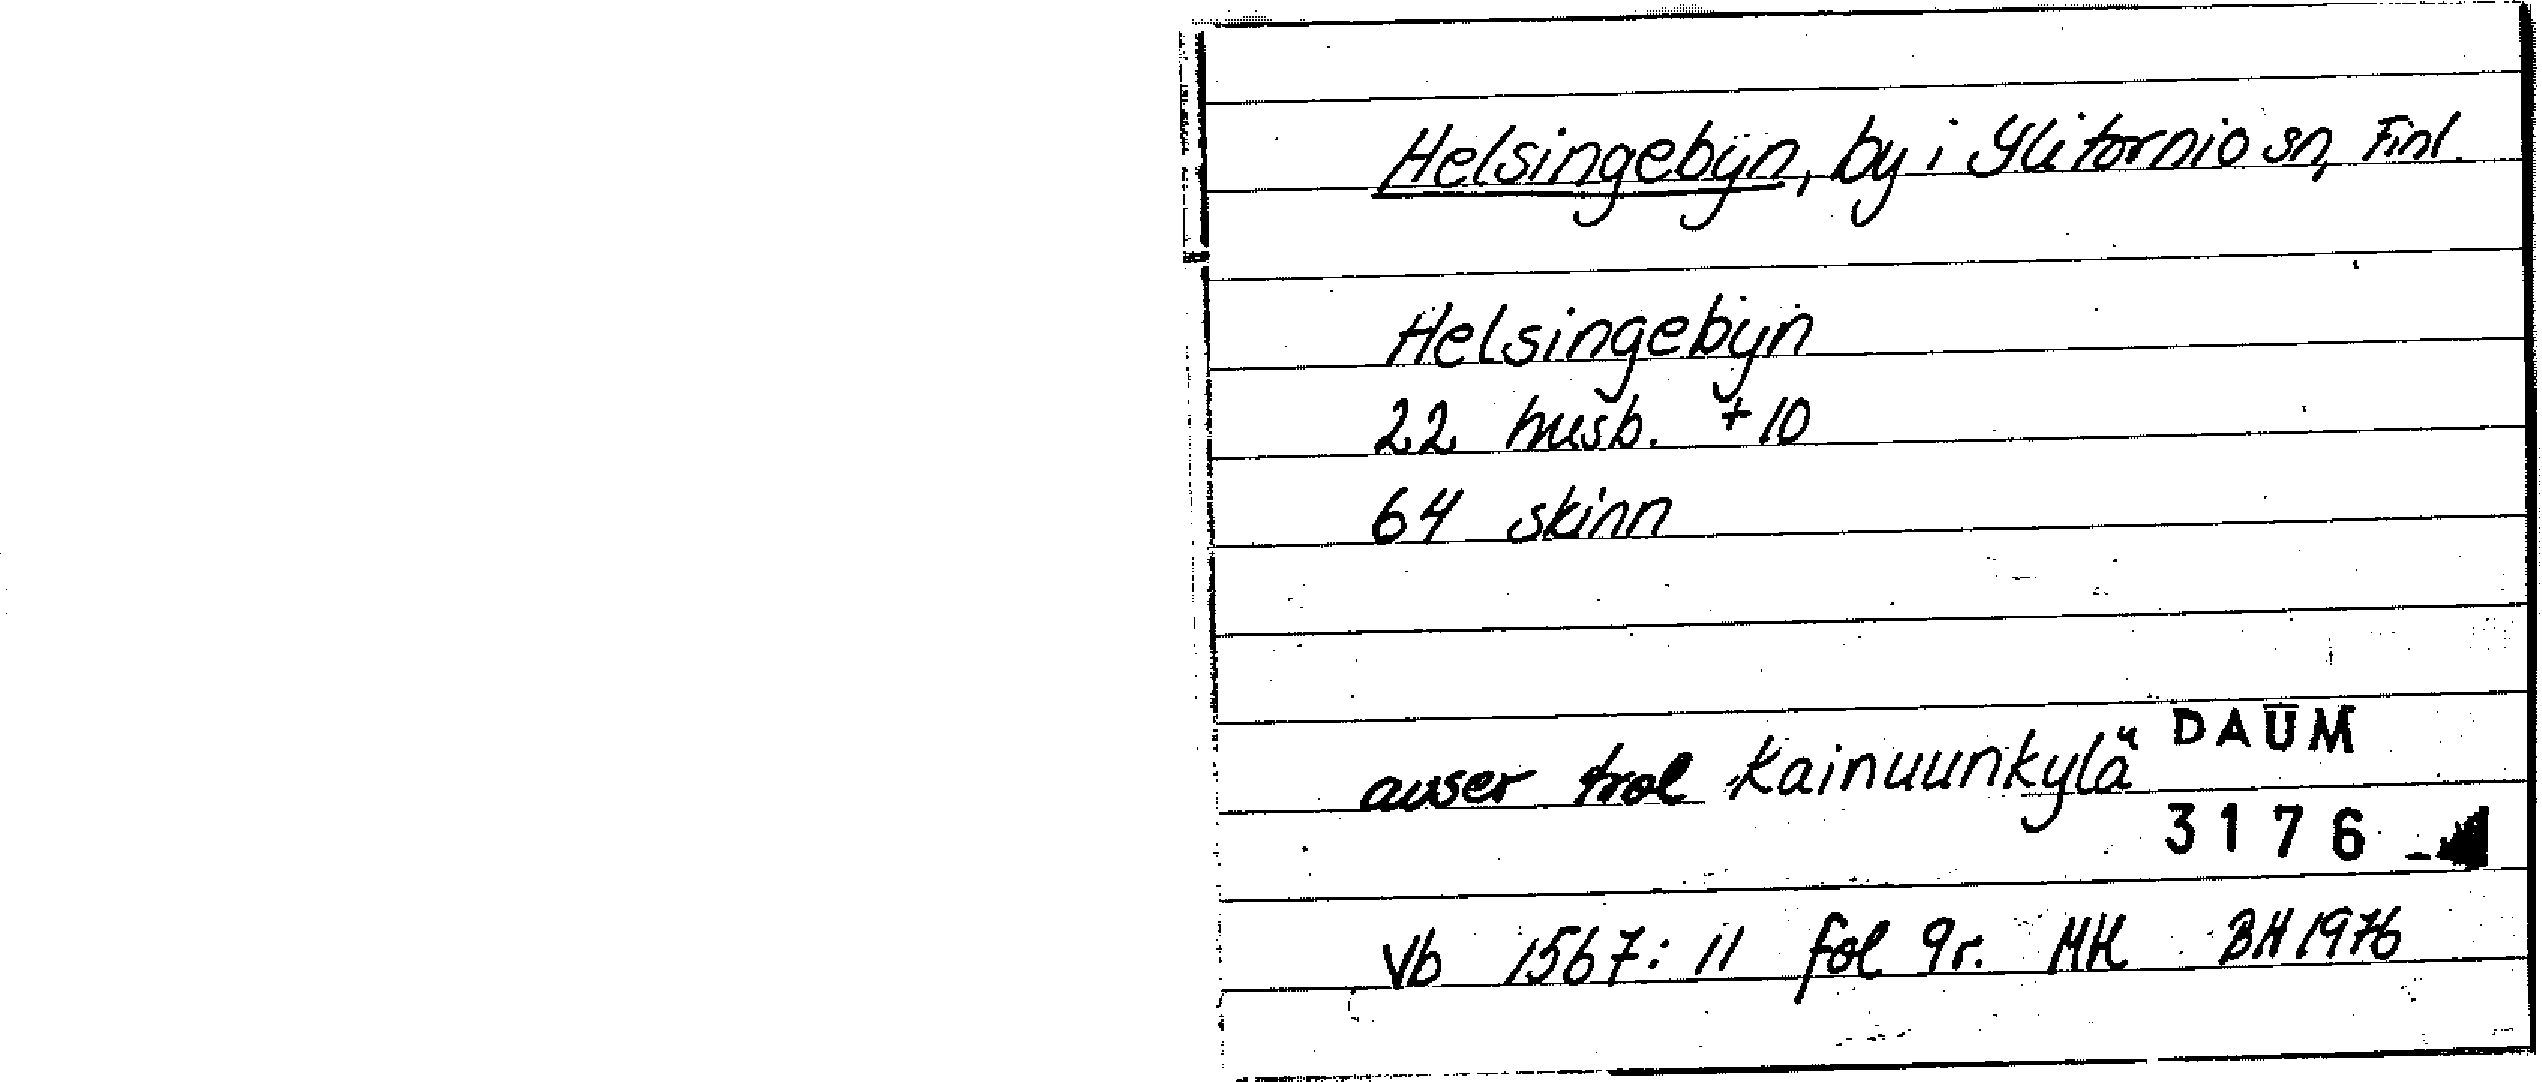 Helsingebÿn, by i Ylitornio sn, Finl.
Helsingebÿn
22 husb. + 10
64 skinn
avser trol Kainuunkylä
DAUM
3176
Vb 1567: 11 fol 9r. MH BH 1976